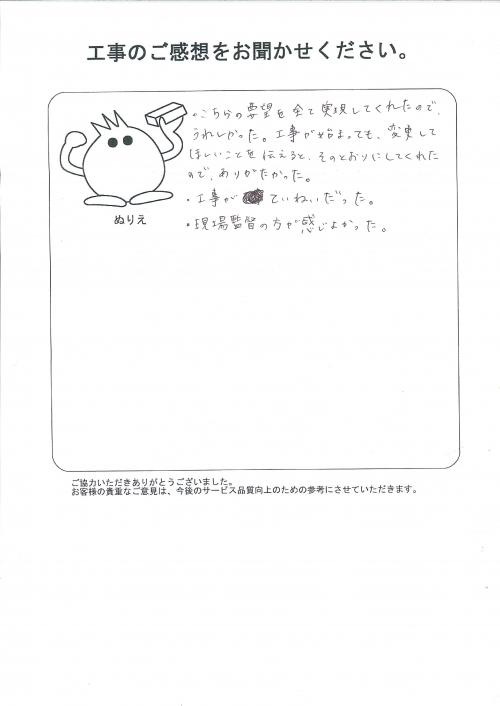 工事のご感想をお聞かせください。
・こちらの要望を全て実現してくれたので、
うれしかった。工事が始まっても、変更して
ほしいことを伝えると、そのとおりにしてくれた
ので、ありがたかった。
・工事が ていねいだった。
・現場監督の方が感じよかった。
ぬりえ
ご協力いただきありがとうございました。
お客様の貴重なご意見は、今後のサービス品質向上のための参考にさせていただきます。